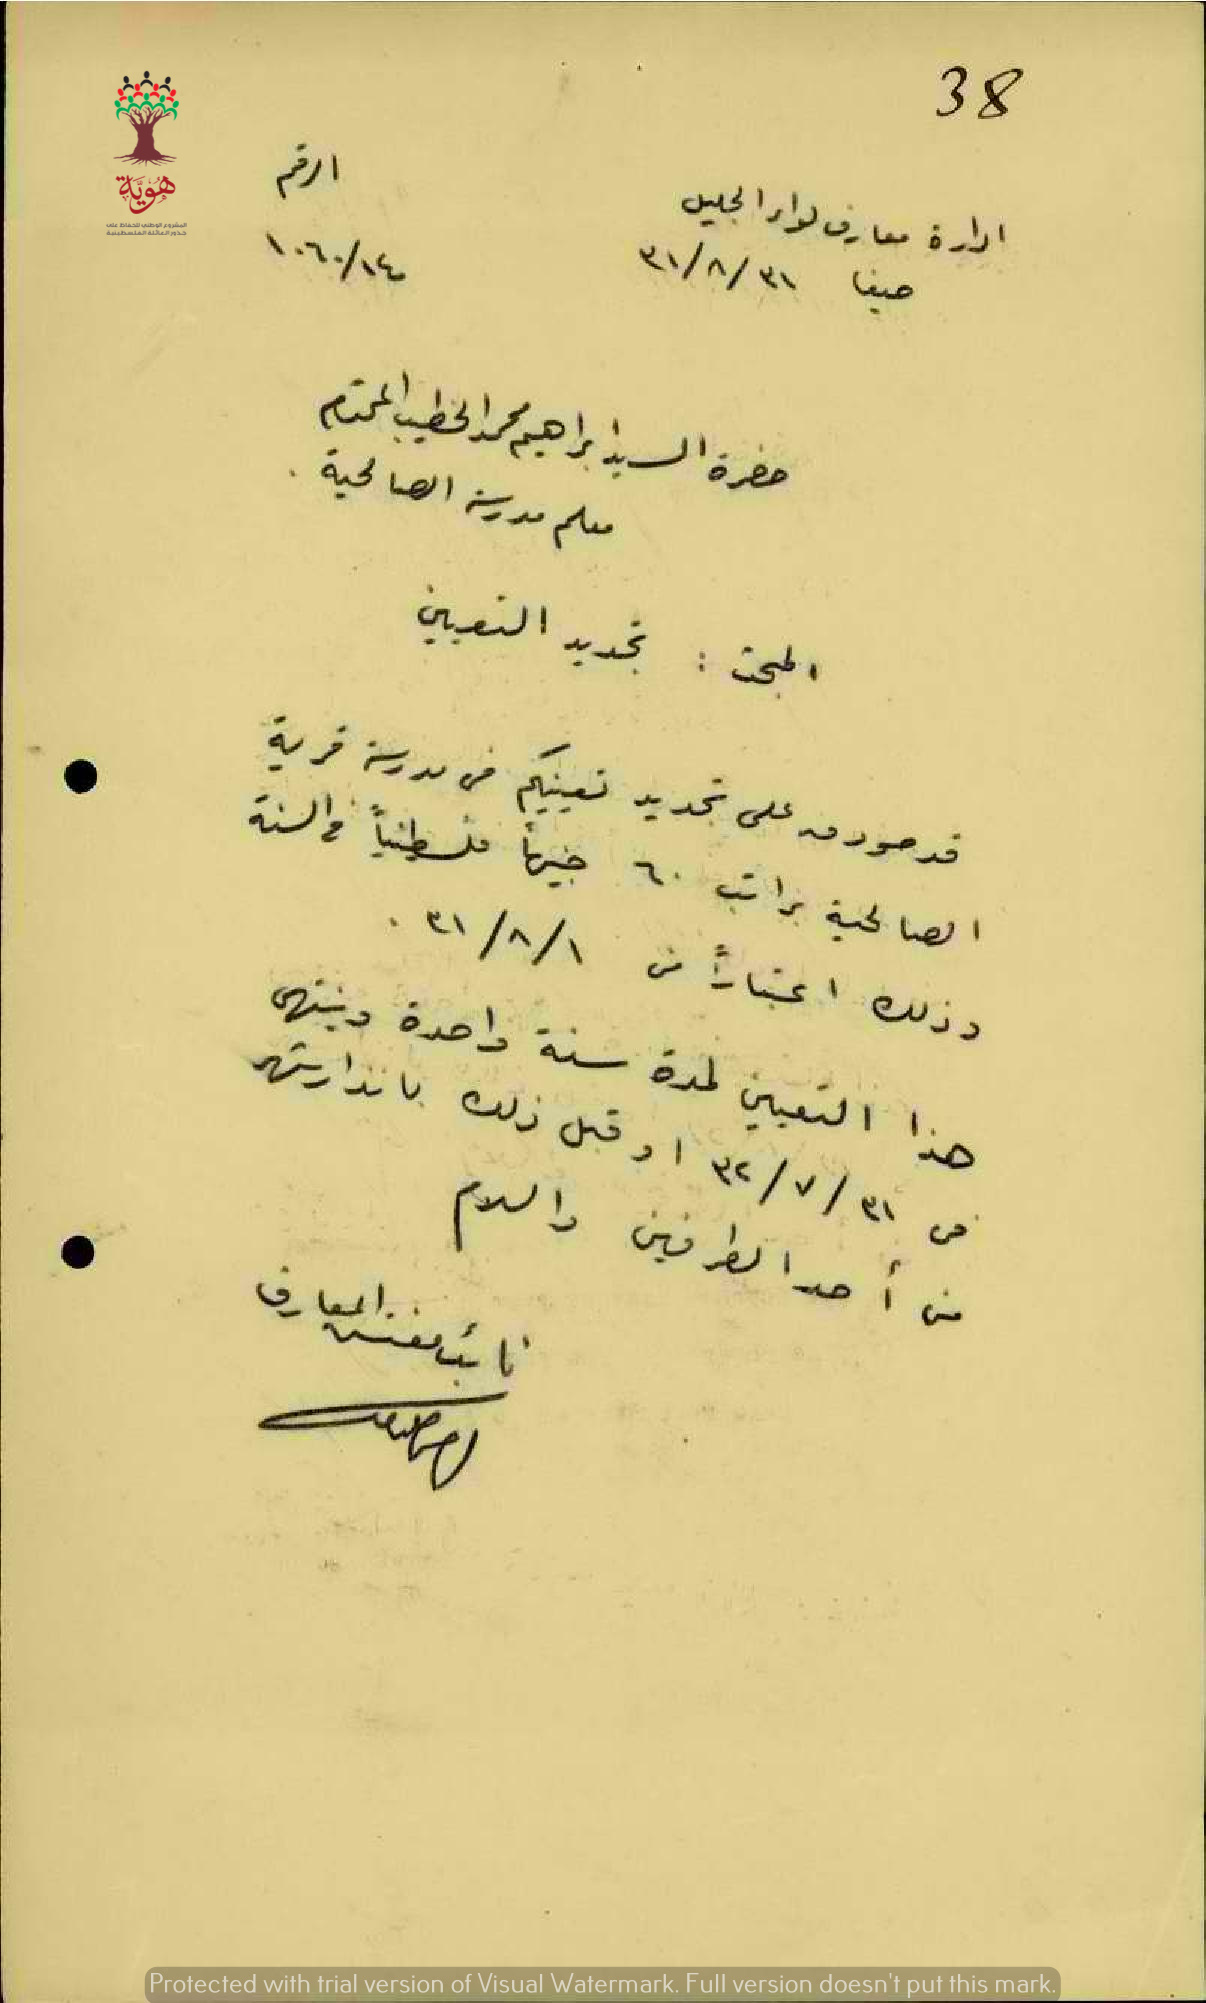 38
هوية
المشروع الوطني للحفاظ على
جذور العائلة الفلسطينية
الرقم
١٠٦٠/١٤٠
ادارة معارف لواء الجليل
حيفا ٣١/٨/٣١
حضرة السيد ابراهيم محمد الخطيب المحترم
معلم مدرسة الصالحية .
المبحث : تجديد التعيين
قد صودق على تجديد تعيينكم في مدرسة قرية
الصالحية براتب ٦٠ جنيهاً فلسطينياً في السنة
وذلك اعتباراً من ٣١/٨/١ .
هذا التعيين لمدة سنة واحدة وينتهي
في ٣٢/٧/٣١ او قبل ذلك بانذار شهر
من أحد الطرفين والسلام
نائب مفتش المعارف
Protected with trial version of Visual Watermark. Full version doesn't put this mark.